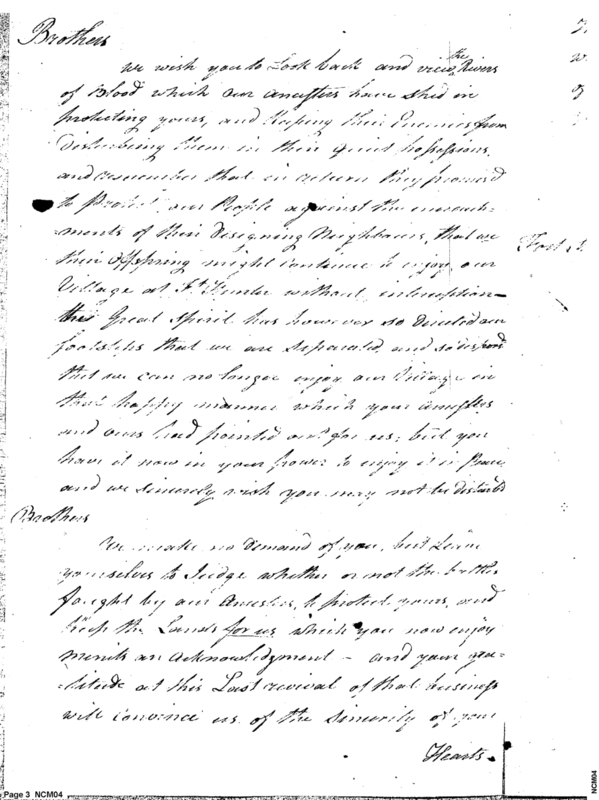 Brothers
We wish you to Look back and view the Rivers
of Blood which our ancesters have shed in
protecting yours, and keeping their Enemies from
Disturbing them in their quiet possessions,
and remember that in return they promised
to Protect our People against the encroach-
ments of their Designing Neighbours, that we
their Offspring might continue to enjoy our
Village at Ft Hunter without interruption —
the Great Spirit has however so Directed our
footsteps that we are Separated, and so dispersed
that we can no longer enjoy our Village in
that happy manner which your ancesters
and ours had pointed out for us; but you
have it now in your power to enjoy it in Peace
and we Sincerely wish you may not be disturbed
Brothers
We make no Demand of you, but Leave
yourselves to Judge whether or not the battles
fought by our Ancesters, to protect yours, and
keep the Lands for us which you now enjoy
merits an Acknowledgment — and your gra-
titude at this Last revival of that business
will convince us of the Sincerity of your
Hearts.
Page 3 NCM04
NCM04